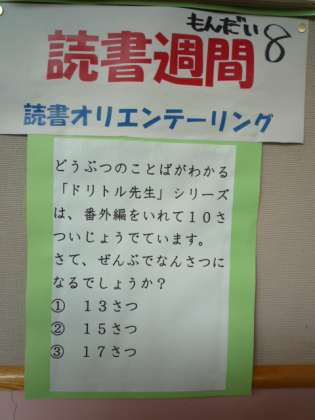 もんだい8
読書週間
読書オリエンテーリング
どうぶつのことばがわかる
「ドリトル先生」シリーズ
は、番外編をいれて１０さ
ついじょうでています。
さて、ぜんぶでなんさつに
なるでしょうか？
① １３さつ
② １５さつ
③ １７さつ